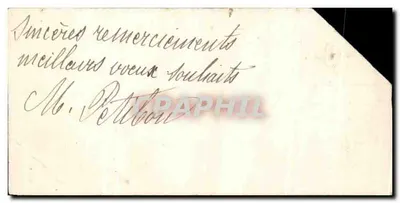 Sincères remerciements
meilleurs voeux souhaits
M. Petitbon